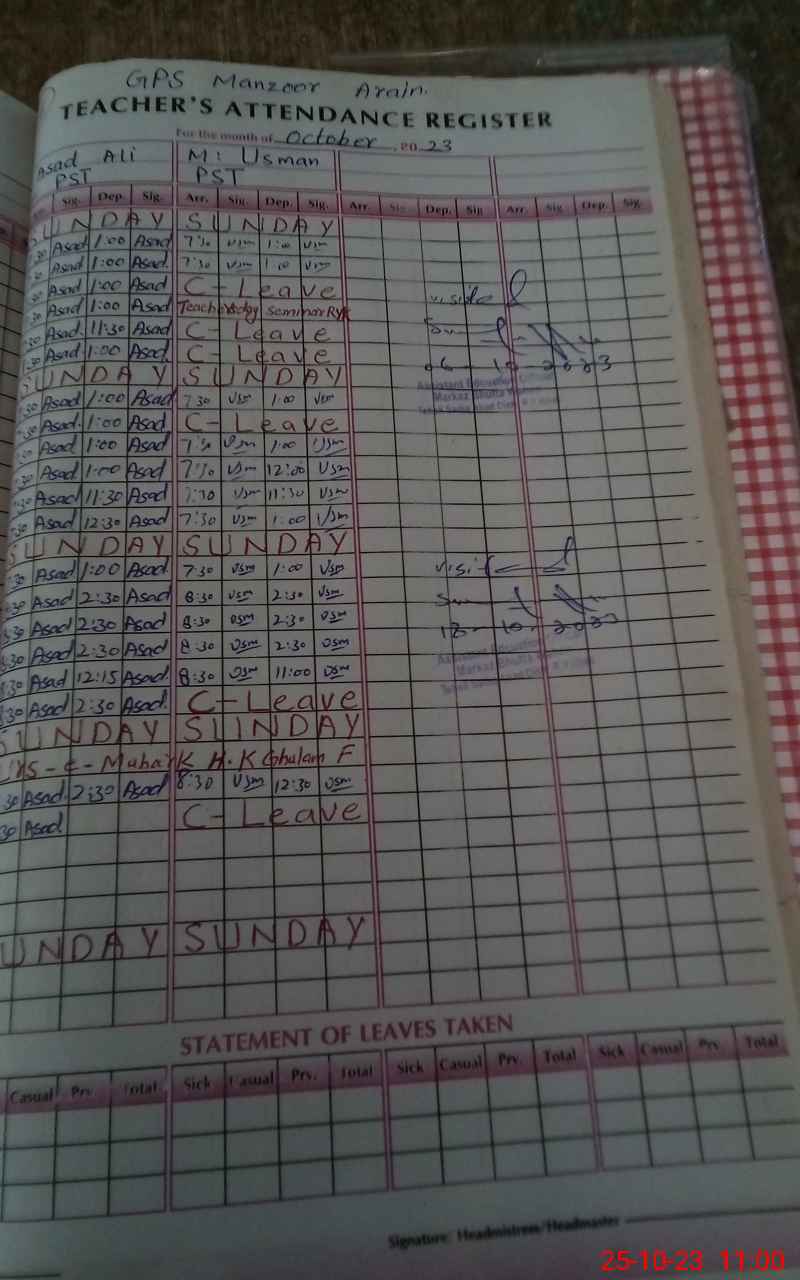 GPS Manzoor Arain.
TEACHER'S ATTENDANCE REGISTER
For the month of October, 2023
Asad Ali M: Usman
PST PST
Sig. Dep. Sig. Arr. Sig. Dep. Sig. Arr. Sig. Dep. Sig. Arr. Sig. Dep. Sig.
UNDAY SUNDAY
30 Asad 1:00 Asad 7:30 Usm 1:00 Usm
30 Asad 1:00 Asad. 7:30 Usm 1:00 Usm
30 Asad 1:00 Asad C-Leave
30 Asad 1:00 Asad Teachersday seminar RYK
:30 Asad 11:30 Asad C-Leave
:30 Asad 1:00 Asad C-Leave
SUNDAY SUNDAY
:30 Asad 1:00 Asad 7:30 Usm 1:00 Usm
:30 Asad. 1:00 Asad C-Leave
:30 Asad 1:00 Asad 7:30 Usm 1:00 Usm
:30 Asad 1:00 Asad 7:30 Usm 12:00 Usm
:30 Asad 11:30 Asad 7:30 Usm 11:30 Usm
:30 Asad 12:30 Asad 7:30 Usm 1:00 Usm
SUNDAY SUNDAY
:30 Asad 1:00 Asad 7:30 Usm 1:00 Usm
:30 Asad 2:30 Asad 8:30 Usm 2:30 Usm
8:30 Asad 2:30 Asad 8:30 Usm 2:30 Usm
8:30 Asad 2:30 Asad 8:30 Usm 2:30 Usm
8:30 Asad 12:15 Asad. 8:30 Usm 11:00 Usm
8:30 Asad 2:30 Asad. C-Leave
SUNDAY SUNDAY
H.K Ghulam F
30 Asad. 2:30 Asad 8:30 Usm 12:30 Usm
30 Asad C-Leave
UNDAY SUNDAY
visited
06-10-2023
Assistant Education Officer
Markaz Bhutta
visit
18-10-2023
Assistant Education
Markaz Bhutta
STATEMENT OF LEAVES TAKEN
Casual Prv. Total Sick Casual Prv. Total Sick Casual Prv. Total Sick Casual Prv. Total
Signature: Headmistress/Headmaster
25-10-23 11:00